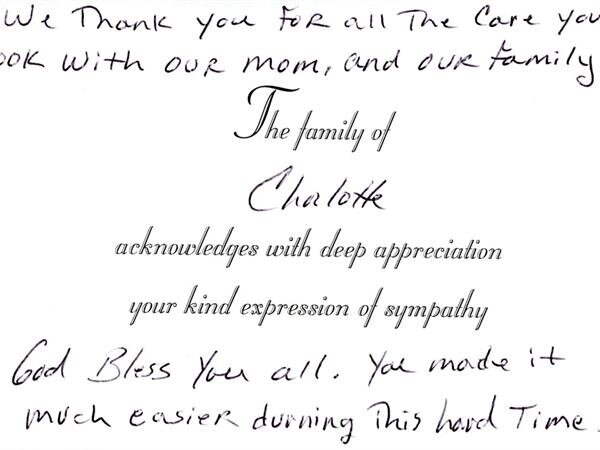 We Thank you FoR all The Care you
ook With ouR mom, and ouR Family
The family of
Chalotte
acknowledges with deep appreciation
your kind expression of sympathy
God Bless You all. You made it
much easieR durning This hard Time.